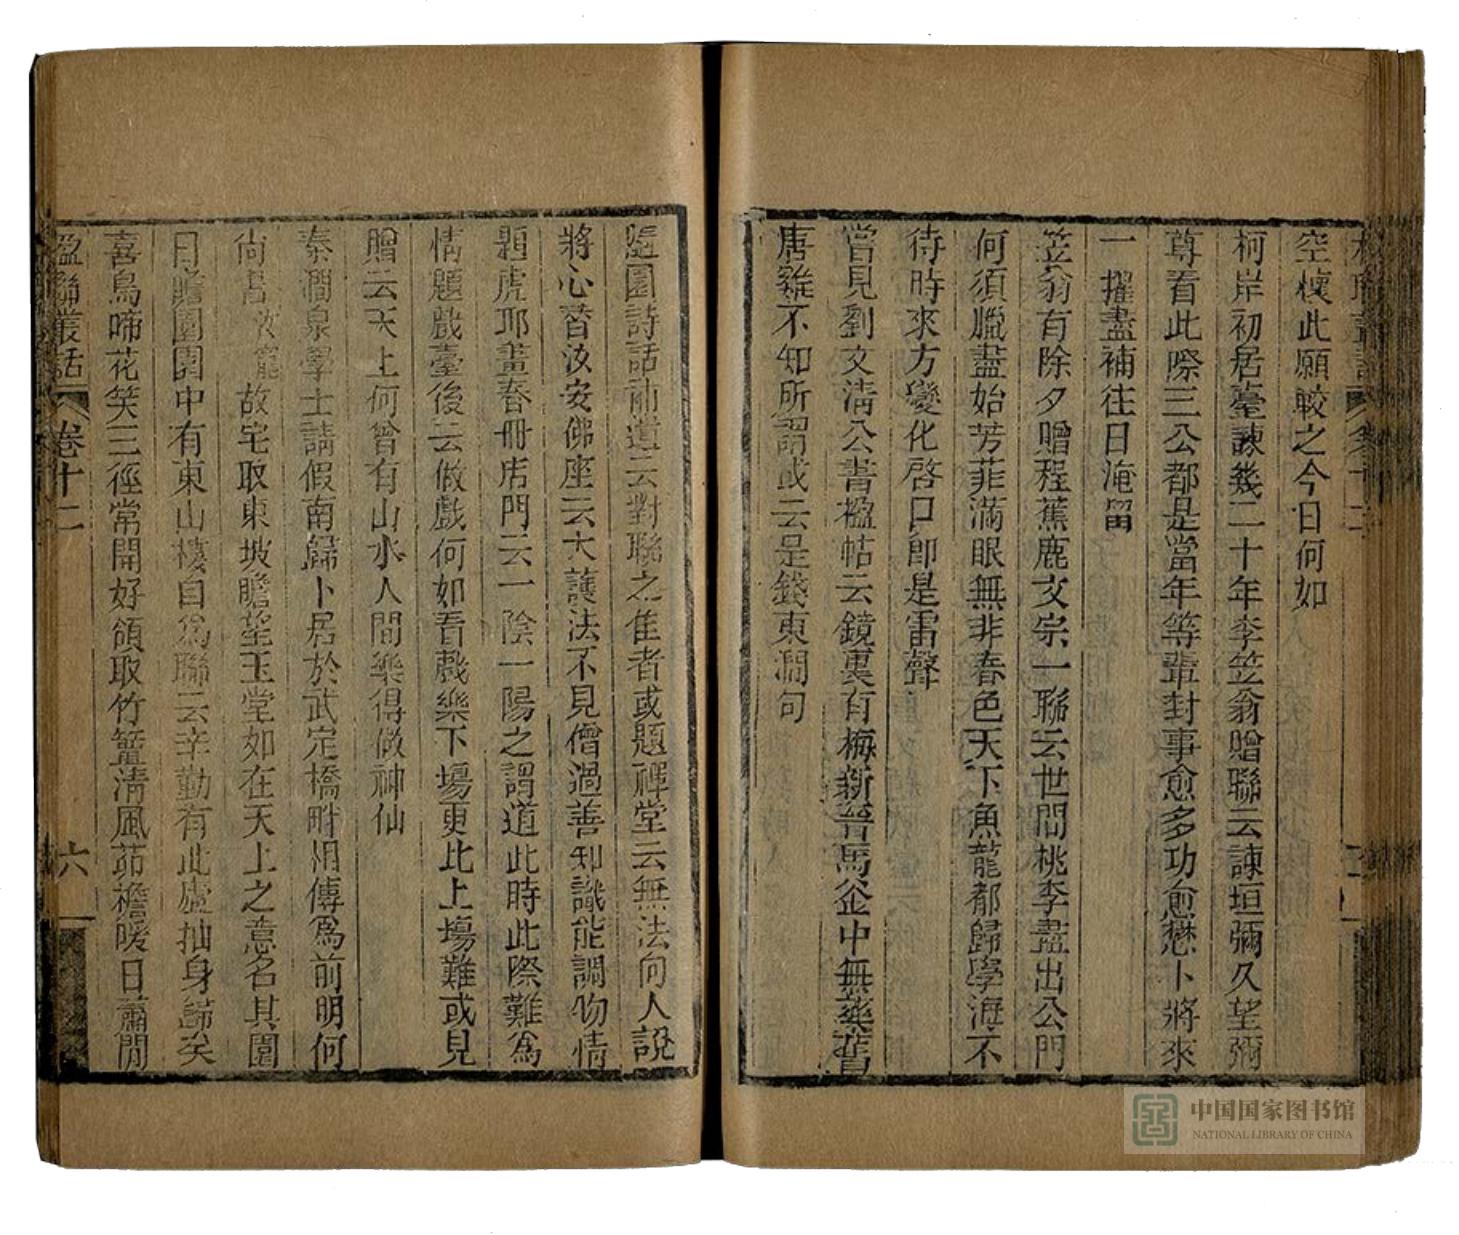 空懷此願較之今日何如
柯岸初居臺諫幾二十年李笠翁贈聯云諫垣彌久望彌
尊看此際三公都是當年等輩封事愈多功愈懋卜將來
一擢盡補往日淹留
笠翁有除夕贈程蕉鹿文宗一聯云世間桃李盡出公門
何須臘盡始芳菲滿眼無非春色天下魚龍都歸學海不
待時來方變化啓口即是雷聲
嘗見劉文淸公書楹帖云鏡裏有梅新晉馬盆中無藥舊
唐雞不知所謂或云是錢東澗句
隨園詩話補遺云對聯之佳者或題禪堂云無法向人說
將心替汝安佛座云大護法不見僧過善知識能調物情
題虎邱畫春冊店門云一陰一陽之謂道此時此際難爲
情題戲臺後云做戲何如看戲樂下場更比上場難或見
贈云天上何曾有山水人間樂得做神仙
秦澗泉學士請假南歸卜居於武定橋畔相傳爲前明何
尙書故宅取東坡瞻望玉堂如在天上之意名其園
曰瞻園園中有東山樓自爲聯云辛勤有此廬抽身歸矣
喜鳥啼花笑三徑常開好領取竹簟淸風茆檐暖日蕭閒
楹聯叢話 卷十二 六
中国国家图书馆
NATIONAL LIBRARY OF CHINA